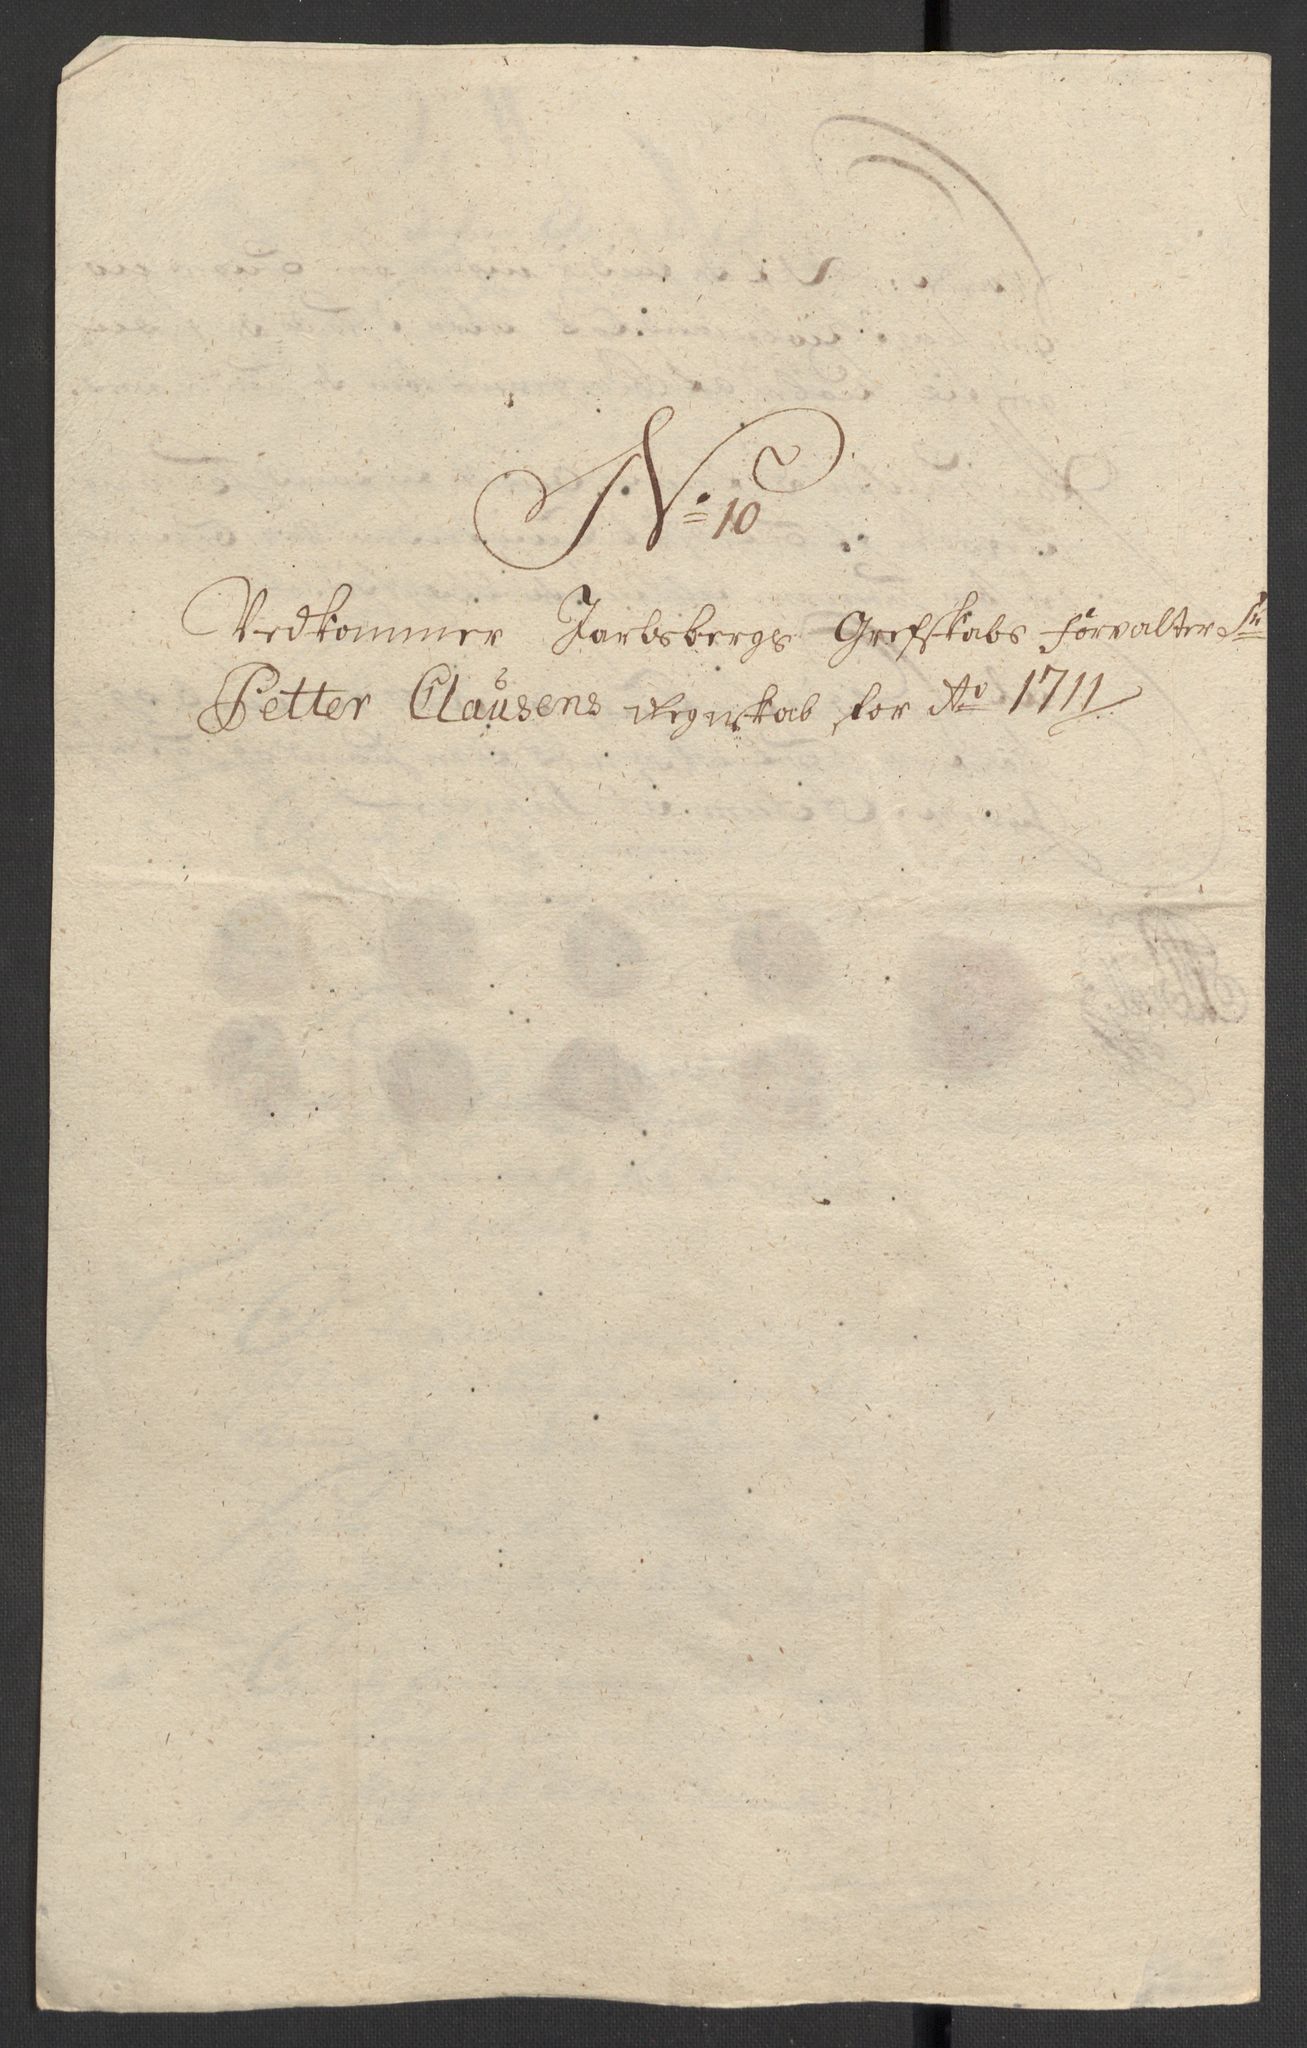 No: 10
Vedkommer Jarlsbergs Grefskabs forvalter Sr
Petter Clausens Regnskab for Ao 1711